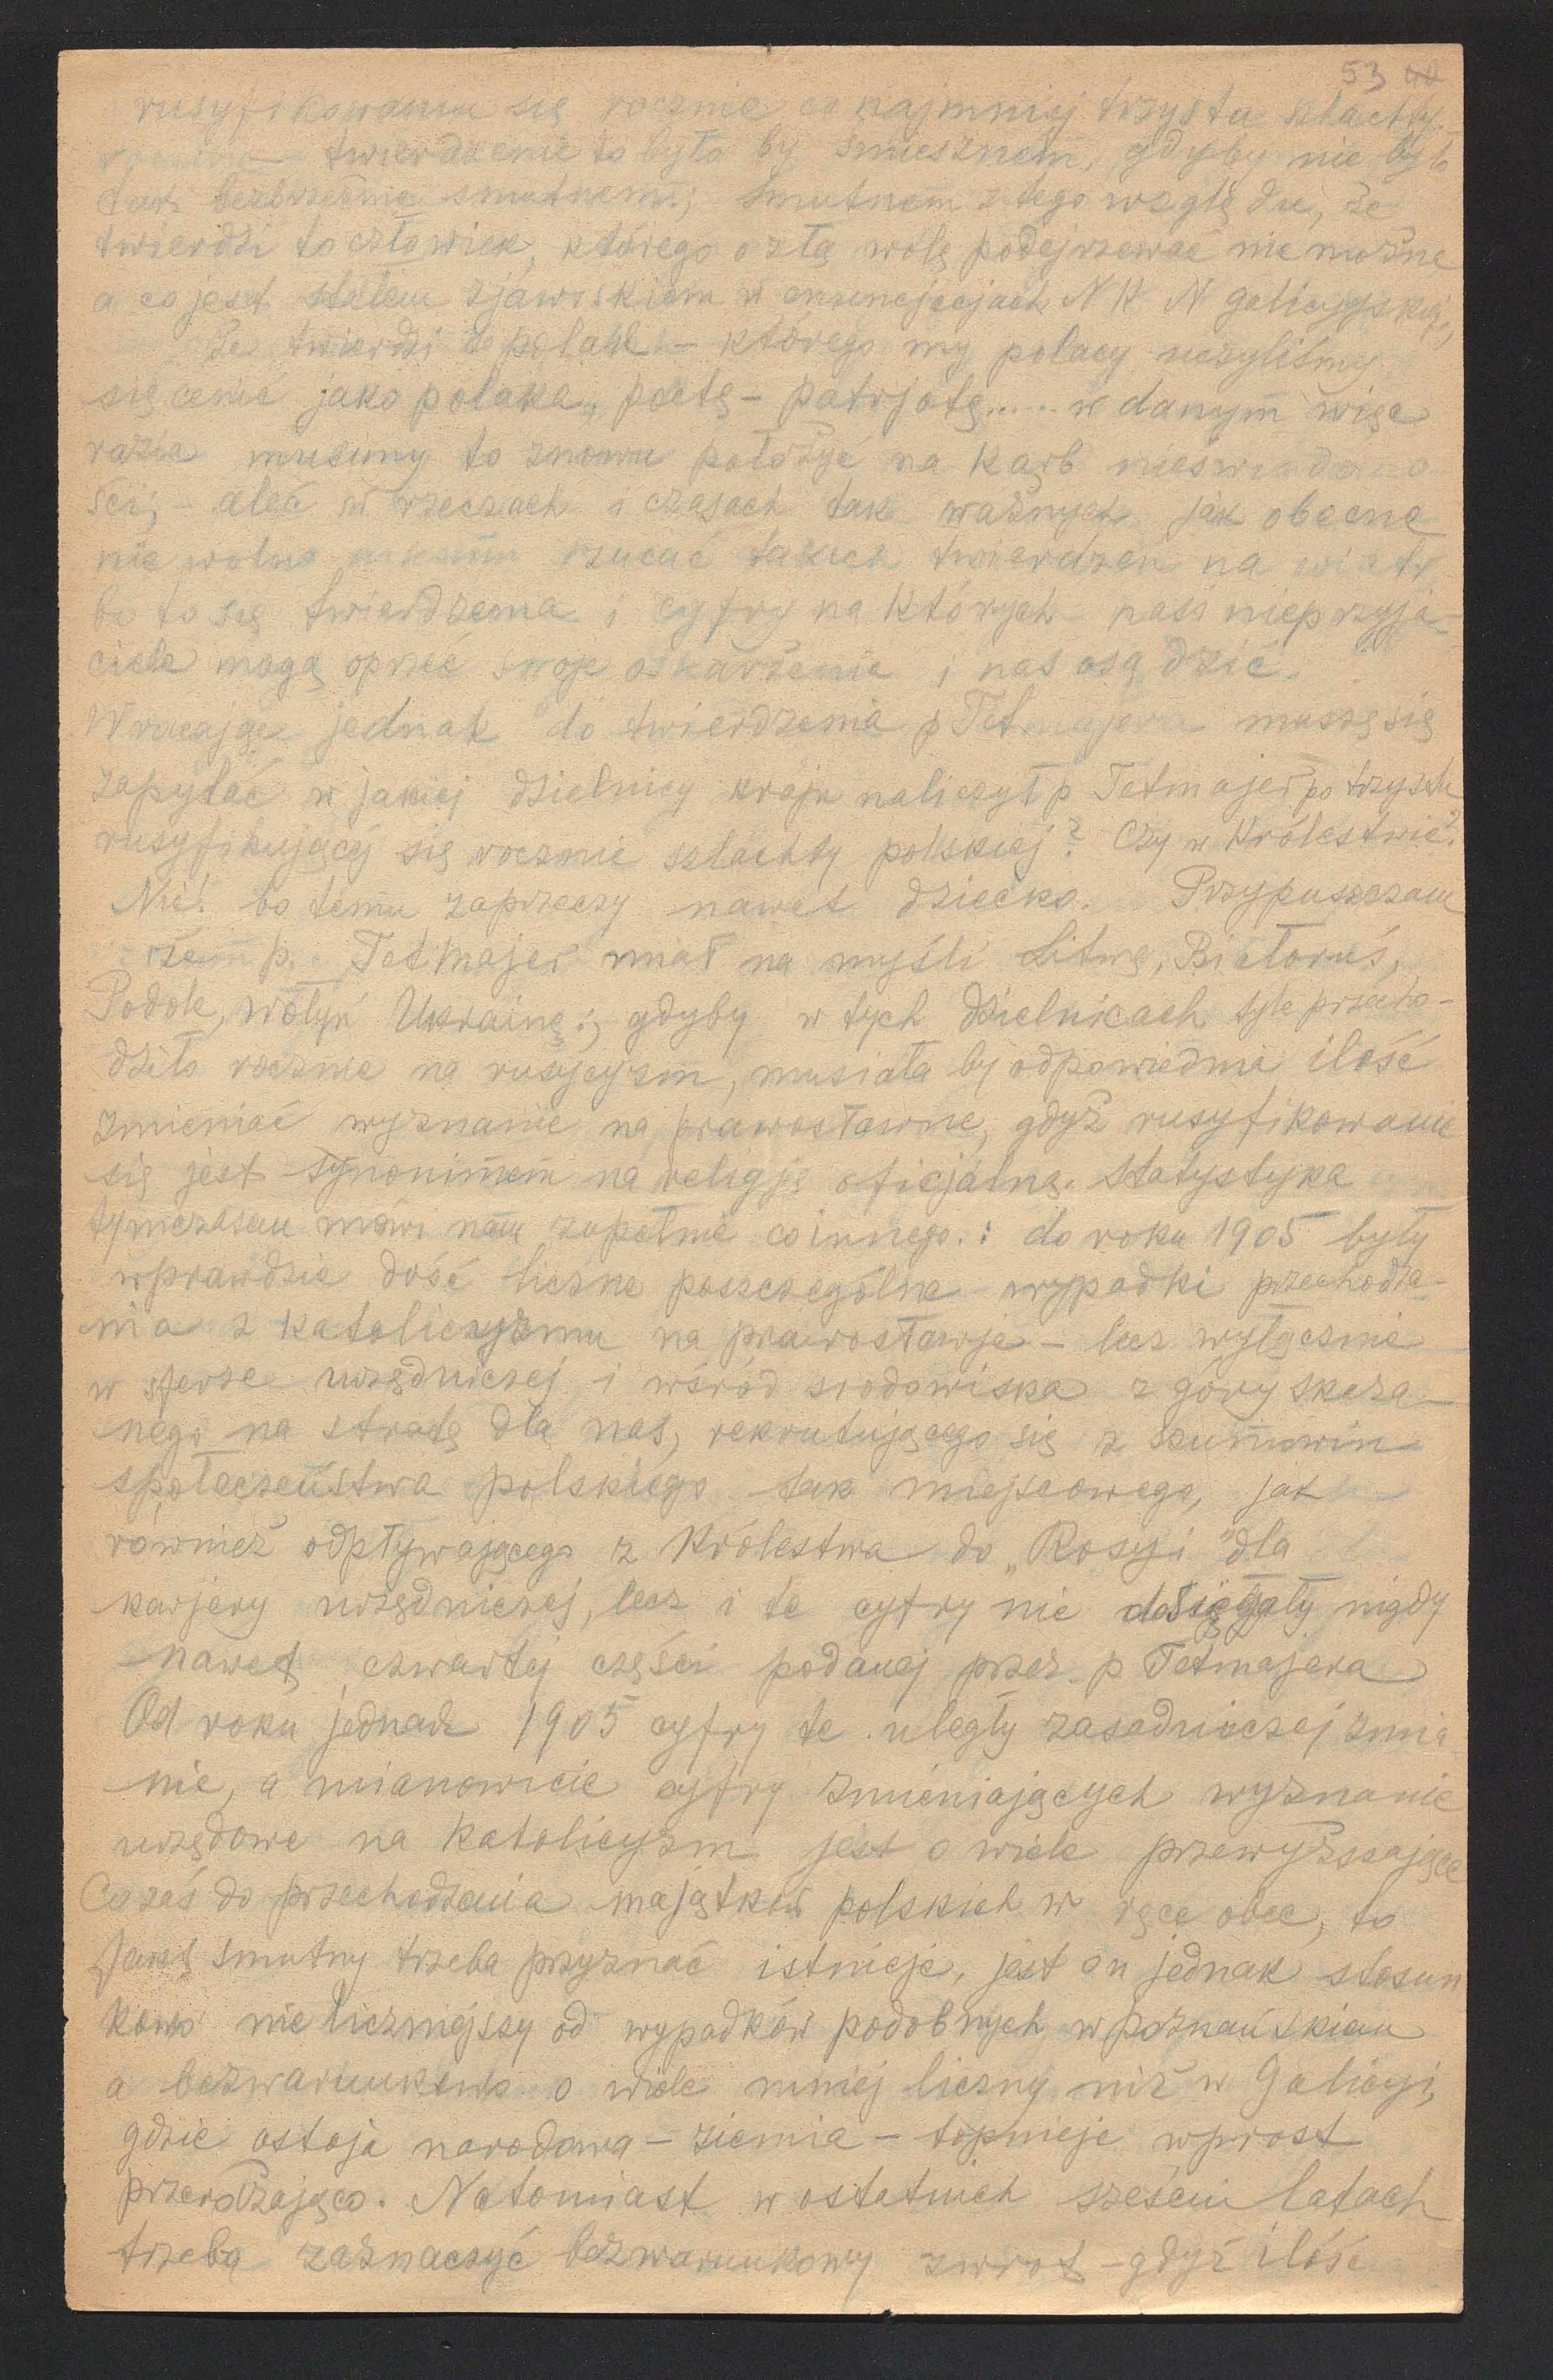 53 40
rusyfikowaniu się rocznie co najmniej trzystu szlachty
twierdzenie to było by śmiesznem, gdyby nie było
tak bezbrzeżnie smutnem; smutnem z tego względu, że
twierdzi to człowiek, którego o złą wolę podejrzewać nie można
a co jest stałem zjawiskiem w enuncjacjach N K N galicyjskiej,
że twierdzi to polak – którego my polacy uczyliśmy
się cenić jako polaka, poetę – patrjotę..... w danym więc
razie musimy to znowu położyć na karb nieświadomo
ści; – aleć w rzeczach i czasach tak ważnych jak obecne
nie wolno nikomu rzucać takich twierdzeń na wiatr
bo to są twierdzenia i cyfry na których nasi nieprzyja-
ciele mogą oprzeć swoje oskarżenia i nas osądzić.
Wracając jednak do twierdzenia p Tetmajera muszę się
zapytać w jakiej dzielnicy kraju naliczył p Tetmajer po trzystu
rusyfikującej się rocznie szlachty polskiej? Czy w Królestwie?
Nie! bo temu zaprzeczy nawet dziecko. Przypuszczam
że p. Tetmajer miał na myśli Litwę, Białoruś,
Podole, Wołyń Ukrainę; gdyby w tych dzielnicach tyle przecho-
dziło rocznie na rusycyzm, musiała by odpowiednia ilość
zmieniać wyznanie na prawosławne, gdyż rusyfikowanie
się jest synonimem na religję oficjalną. Statystyka
tymczasem mówi nam zupełnie co innego.: do roku 1905 były
wprawdzie dość liczne poszczególne wypadki przechodze-
nia z katolicyzmu na prawosławje – lecz wyłącznie
w sferze urzędniczej i wśród srodowiska z góry skaza-
nego na stratę dla nas, rekrutującego się z szumowin
społeczeństwa polskiego tak miejscowego, jak
również odpływającego z Królestwa do „Rosyi" dla
karjery urzędniczej, lecz i te cyfry nie dosięgały nigdy
nawet czwartej części podanej przez p Tetmajera
Od roku jednak 1905 cyfry te uległy zasadniczej zmia
nie, a mianowicie cyfry zmieniających wyznanie
urzędowe na katolicyzm jest o wiele przewyższające
Co zaś do przechodzenia majątków polskich w ręce obce, to
fakt smutny trzeba przyznać istnieje, jest on jednak stosun
kowo nie liczniejszy od wypadków podobnych w poznańskiem
a bezwarunkowo o wiele mniej liczny niż w Galicyi,
gdzie ostoja narodowa – ziemia – topnieje wprost
przerażająco. Natomiast w ostatnich sześciu latach
trzeba zaznaczyć bezwarunkowy zwrot – gdyż ilość